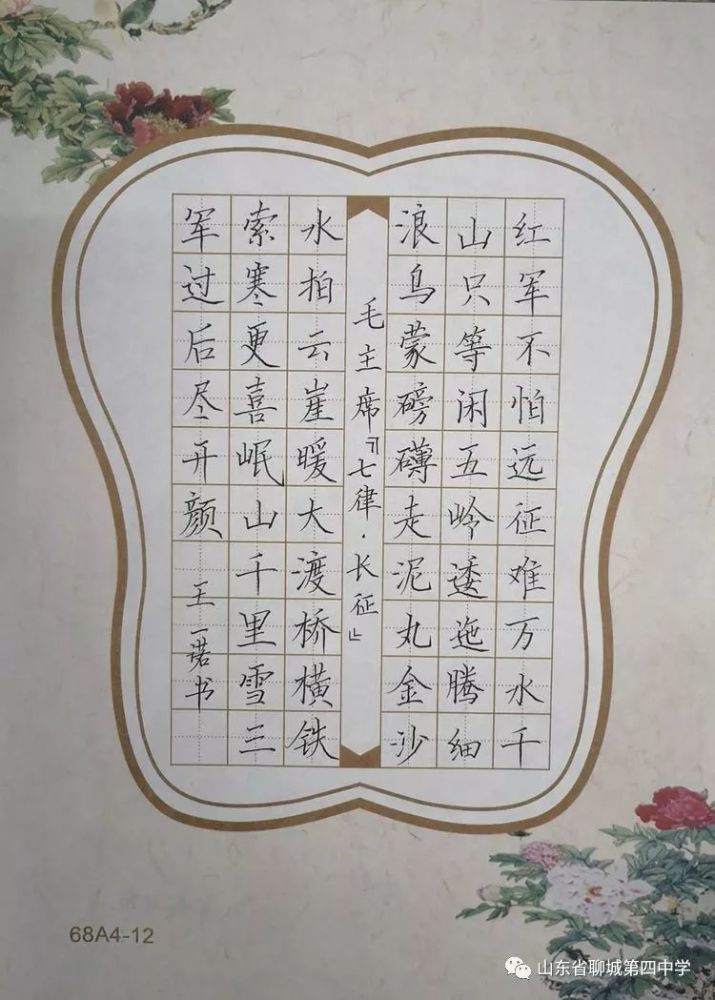 红军不怕远征难万水千
山只等闲五岭逶迤腾细
浪乌蒙磅礴走泥丸金沙
毛主席『七律·长征』
水拍云崖暖大渡桥横铁
索寒更喜岷山千里雪三
军过后尽开颜
王一诺书
68A4-12
山东省聊城第四中学